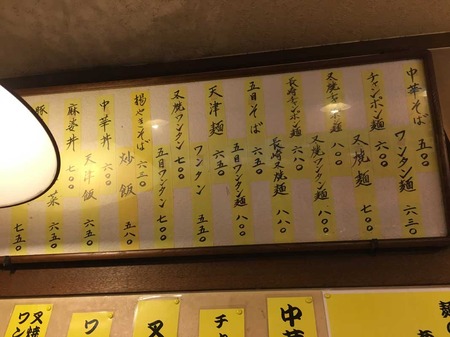 中華そば 五〇〇
ワンタン麺 六三〇
チャンポン麺 六〇〇
叉焼麺 七〇〇
叉焼チャンポン麺 八〇〇
叉焼ワンタン麺 八〇〇
長崎チャンポン麺 六八〇
長崎叉焼麺 八八〇
五目そば 六五〇
五目ワンタン麺 八〇〇
天津麺 六五〇
ワンタン 五五〇
叉焼ワンタン 七〇〇
五目ワンタン 七〇〇
揚やきそば 六三〇
炒飯 五八〇
中華丼 六〇〇
天津飯 六五〇
麻婆丼 六五〇
豚
菜 七五〇
叉焼
ワン
ワ
叉
チ
中華
麺